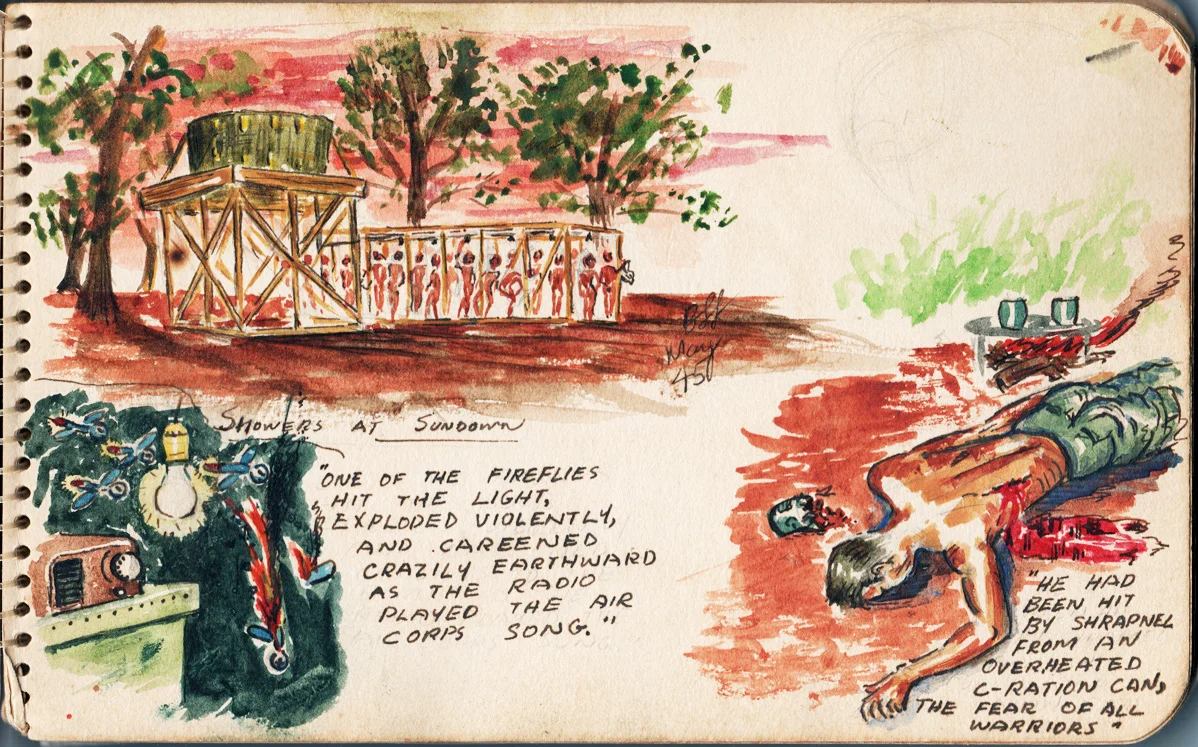 BSL
May
45
SHOWERS AT SUNDOWN
"ONE OF THE FIREFLIES
HIT THE LIGHT,
EXPLODED VIOLENTLY,
AND CAREENED
CRAZILY EARTHWARD
AS THE RADIO
PLAYED THE AIR
CORPS SONG."
"HE HAD
BEEN HIT
BY SHRAPNEL
FROM AN
OVERHEATED
C-RATION CAN,
THE FEAR OF ALL
WARRIORS"